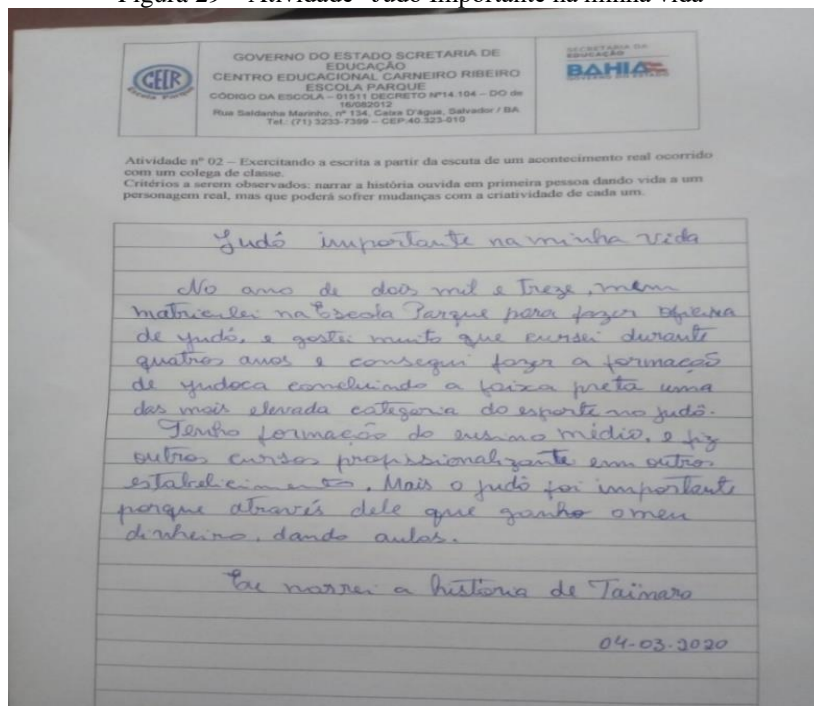 Figura 29 – Atividade "Judô Importante na minha vida"
CEIR
Escola Parque
GOVERNO DO ESTADO SCRETARIA DE
EDUCAÇÃO
CENTRO EDUCACIONAL CARNEIRO RIBEIRO
ESCOLA PARQUE
CÓDIGO DA ESCOLA – 01511 DECRETO Nº14.104 – DO de
16/082012
Rua Saldanha Marinho, nº 134, Caixa D'água, Salvador / BA
Tel.: (71) 3233-7399 – CEP:40.323-010
SECRETARIA DA
EDUCAÇÃO
BAHIA
GOVERNO DO ESTADO
Atividade nº 02 – Exercitando a escrita a partir da escuta de um acontecimento real ocorrido
com um colega de classe.
Critérios a serem observados: narrar a história ouvida em primeira pessoa dando vida a um
personagem real, mas que poderá sofrer mudanças com a criatividade de cada um.
Judô importante na minha vida
No ano de dois mil e treze, mem
matriculei na Escola Parque para fazer oficina
de judô, e gostei muito que cursei durante
quatros anos e consegui fazer a formação
de judoca concluindo a faixa preta uma
das mais elevada categoria do esporte no judô.
Tenho formação do ensino médio, e fiz
outros cursos profissionalizante em outros
estabelecimento. Mais o judô foi importante
porque através dele que ganho o meu
dinheiro, dando aulas.
Eu narrei a história de Tainara
04-03-2020